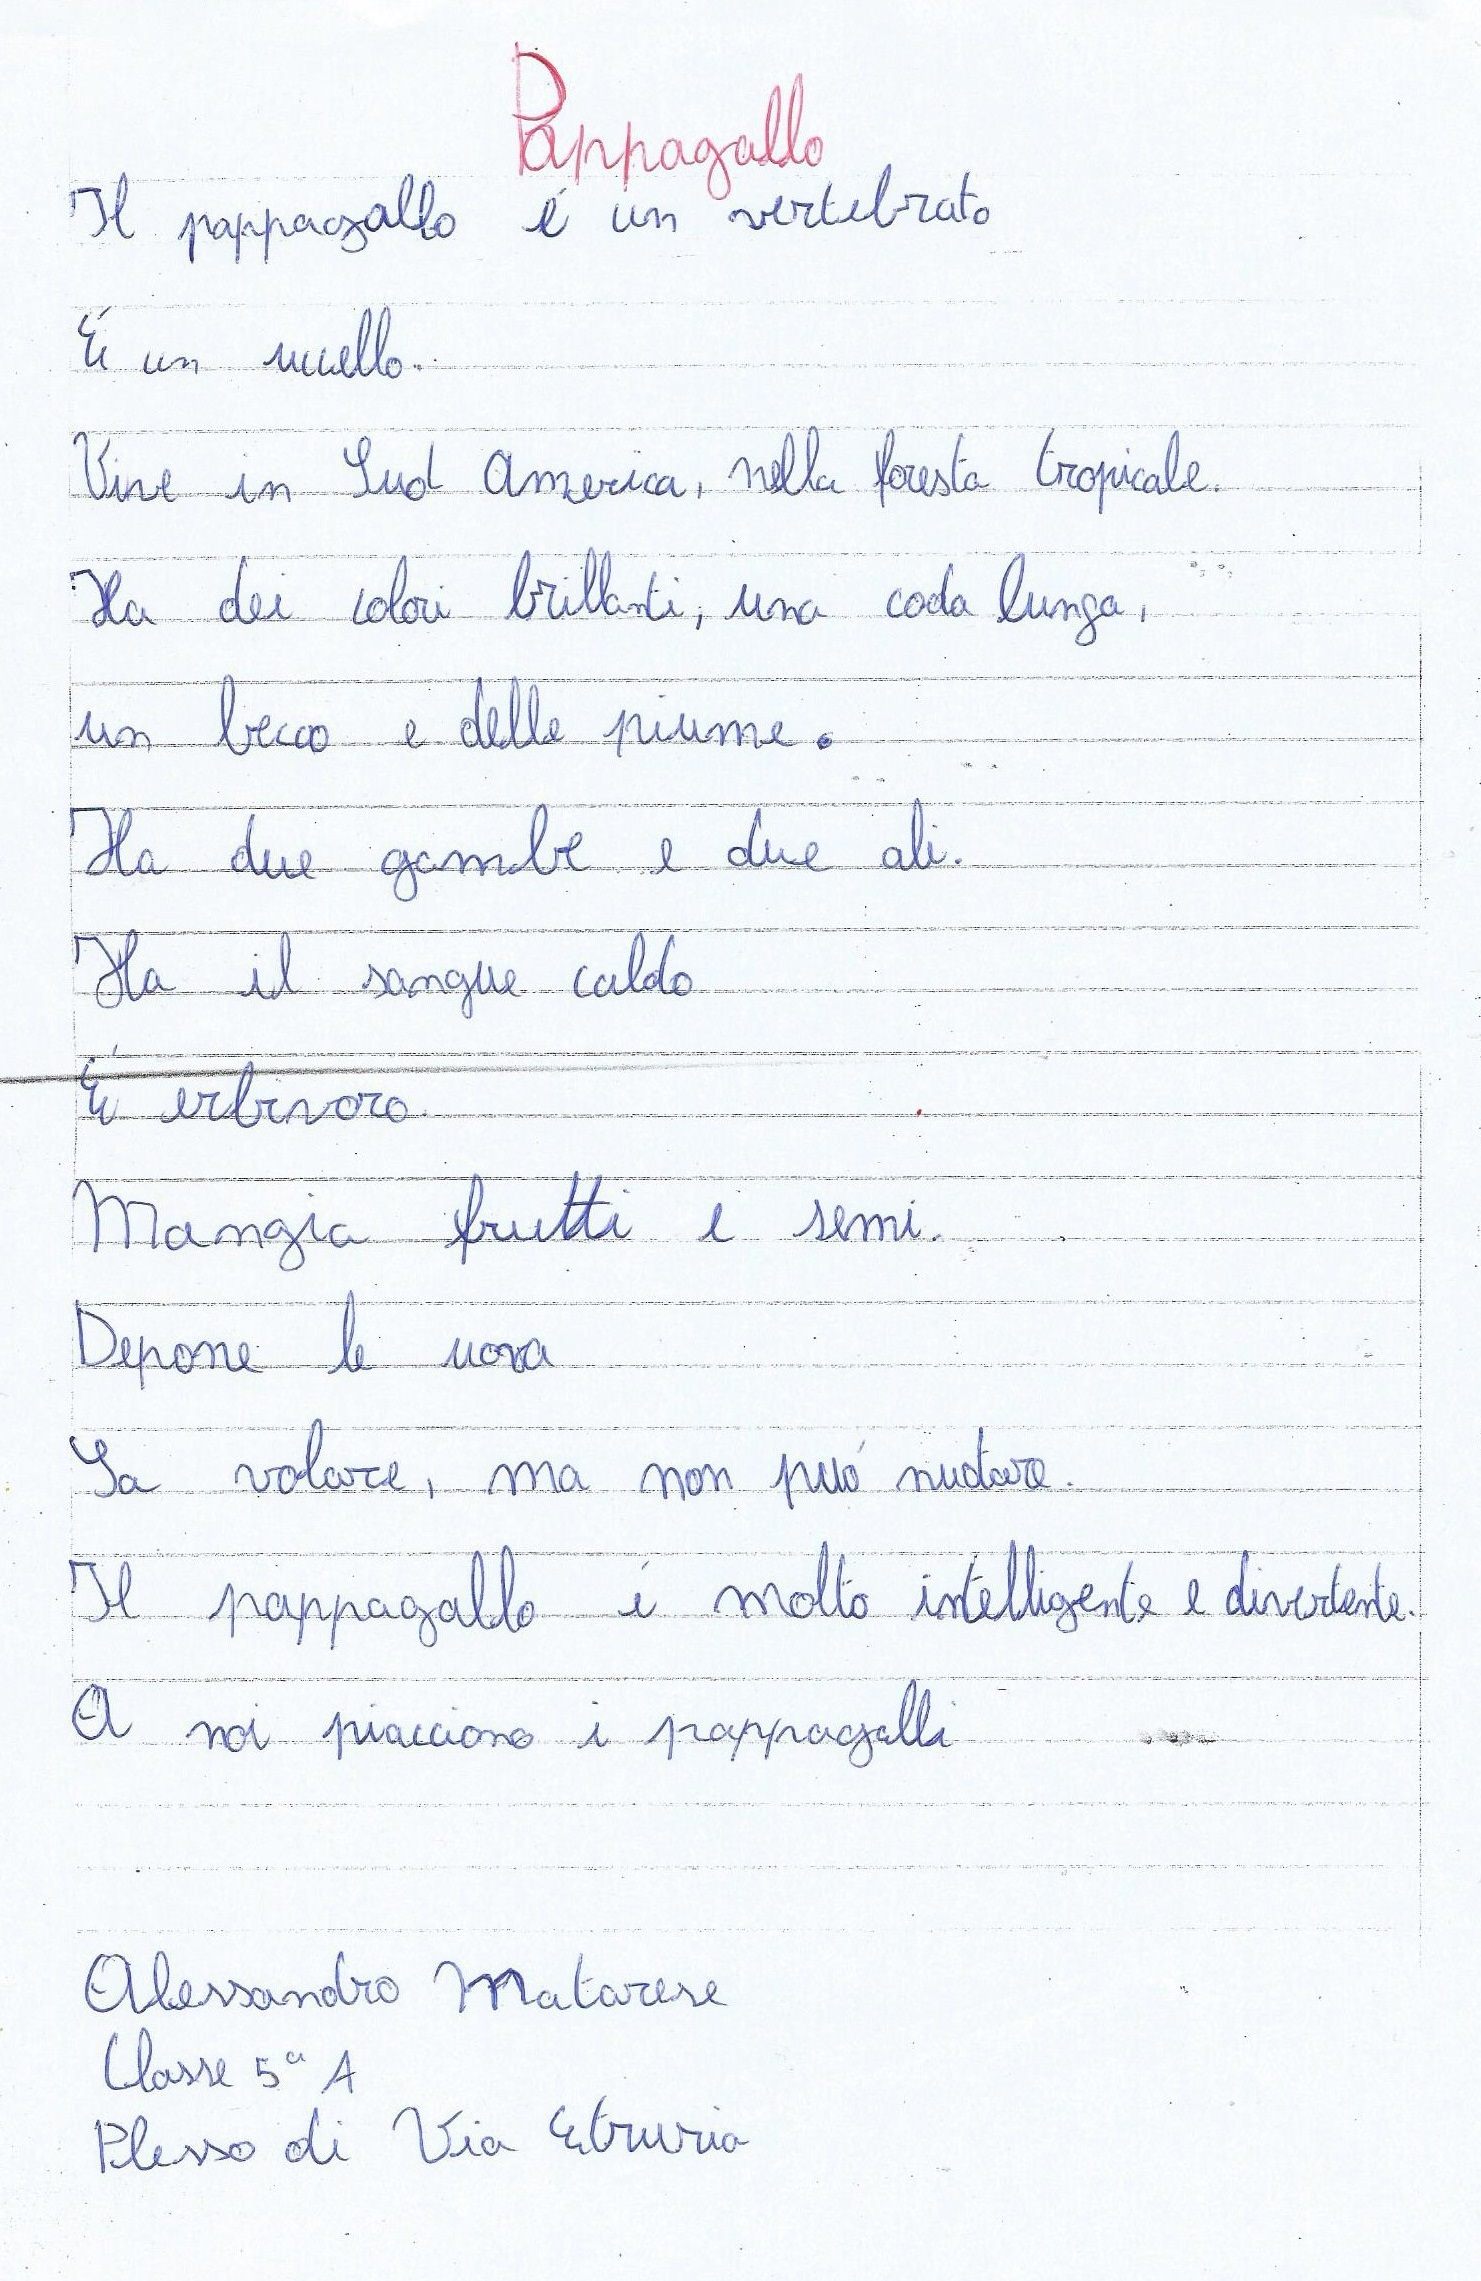 Pappagallo
Il pappagallo é un vertebrato
É un uccello.
Vive in Sud America, nella foresta tropicale.
Ha dei colori brillanti, una coda lunga,
un becco e delle piume.
Ha due gambe e due ali.
Ha il sangue caldo
É erbivoro.
Mangia frutti e semi.
Depone le uova
Sa volare, ma non puó nuotare.
Il pappagallo é molto intelligente e divertente.
A noi piacciono i pappagalli
Alessandro Matarese
Classe 5ª A
Plesso di Via Etruria